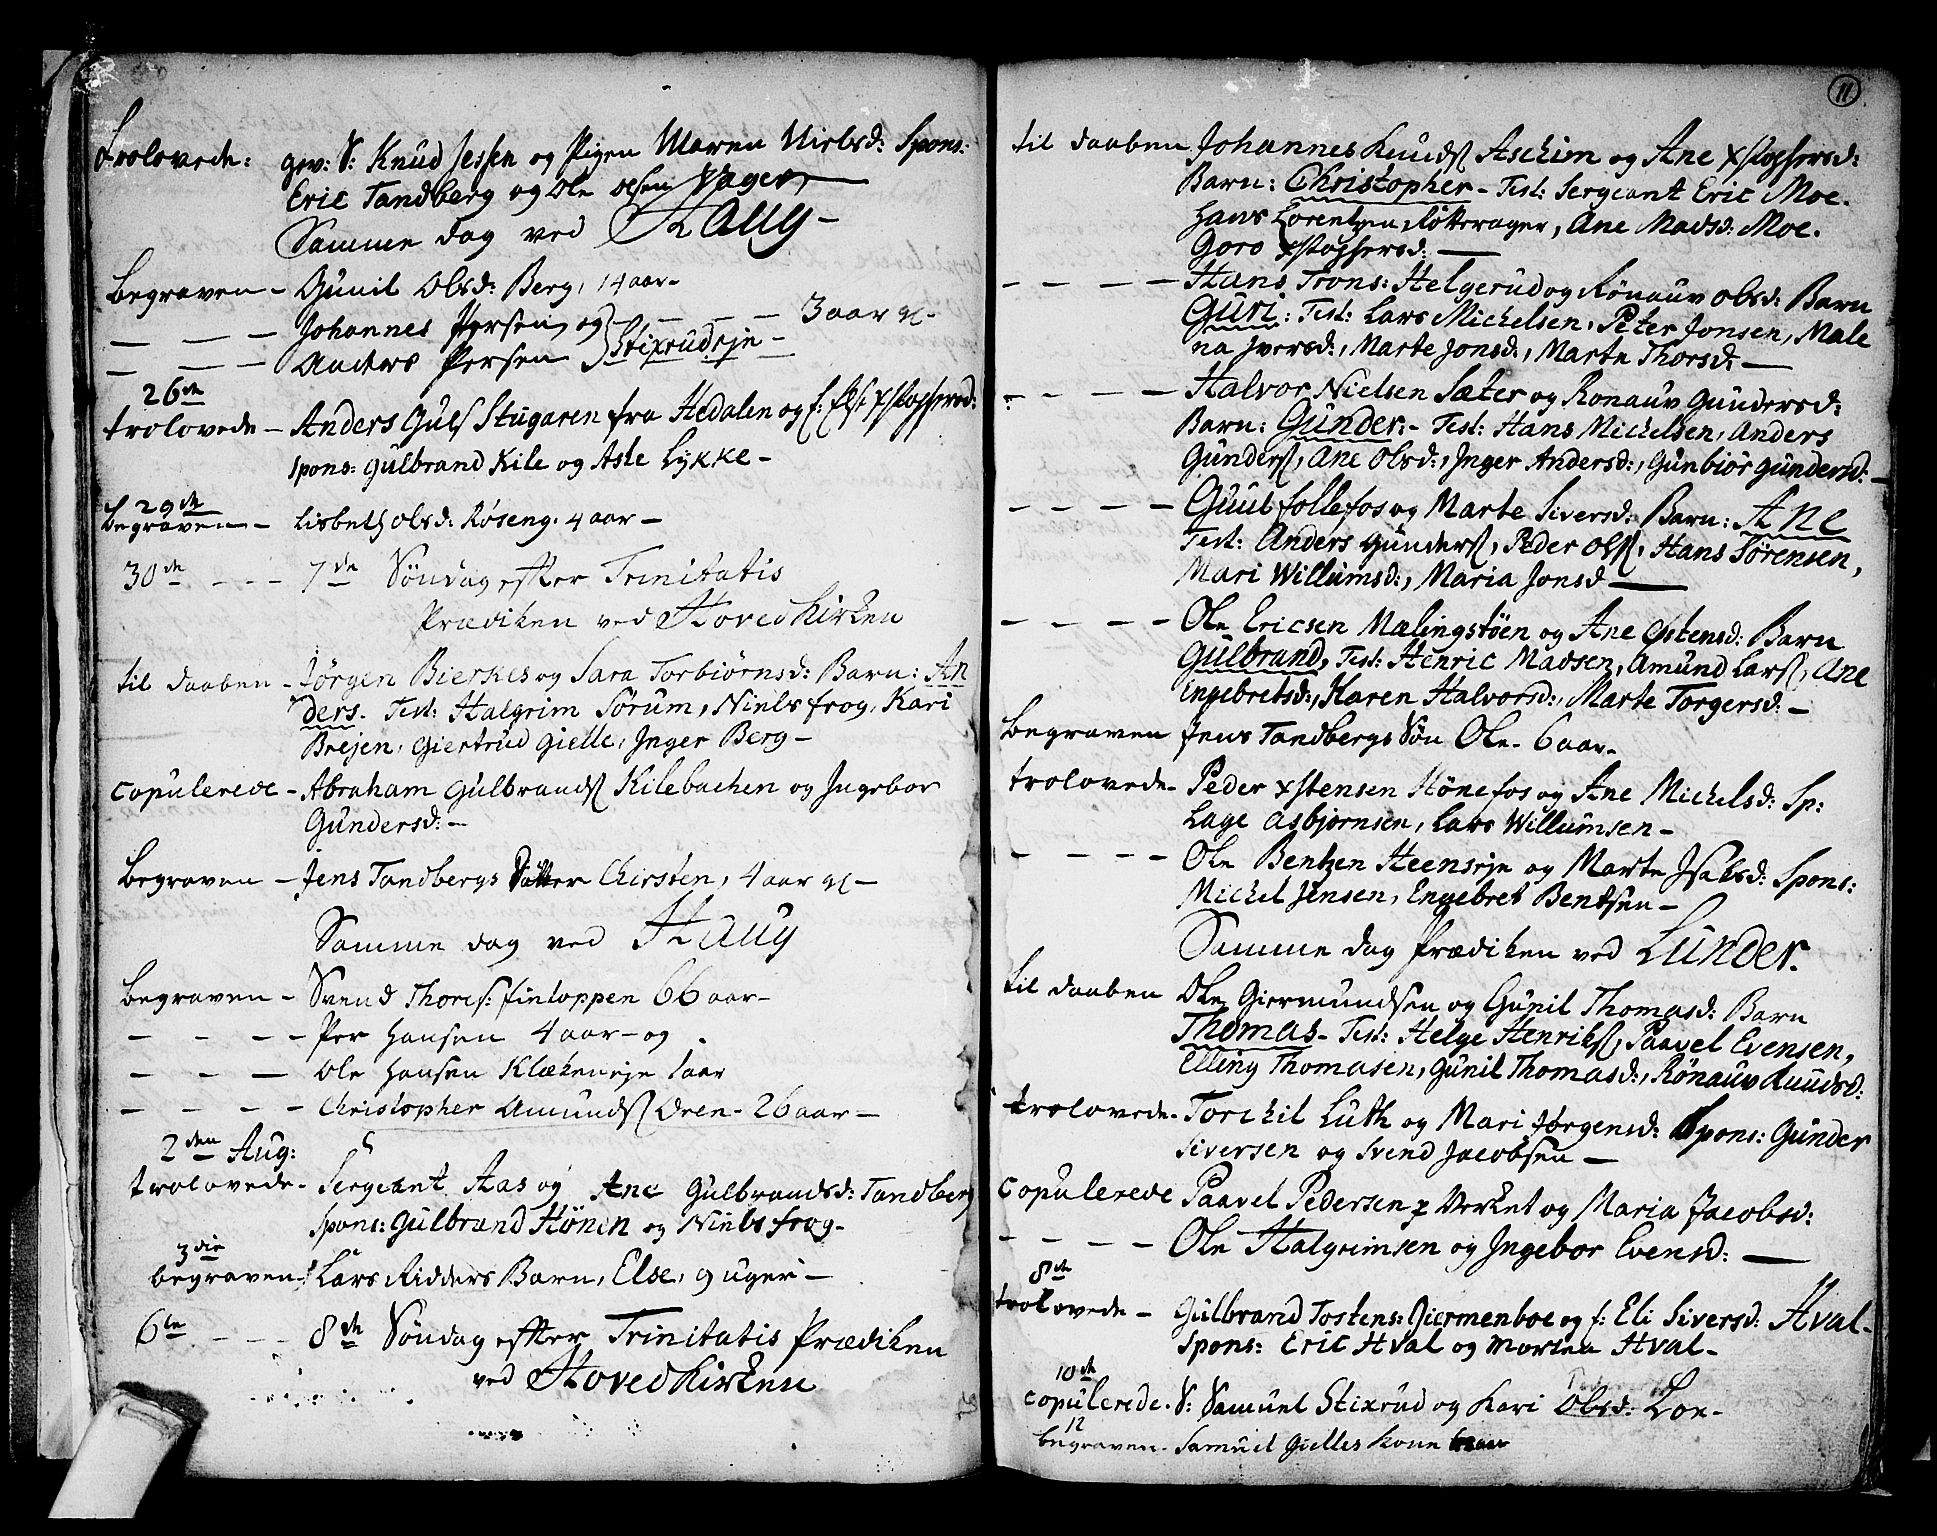 trolovede: gev: S: Knud Jessen og Pigen Maren Nielsd: Spons:
Eric Tandberg og Ole Olsen Vager
Samme dag ved Haug -
Begraven - Gunil Olsd: Berg, 14 aar -
- - - Johannes Persen og - - - 3 aar gl -
- - - Anders Persen Stixrudeje -
26de
trolovede - Anders Guls Stugaren fra Hedalen og f: Else Xstophersd:
Spons: Gulbrand Kile og Aste Lykke -
29de
Begraven - Lisbeth Olsd: Røseng. 4 aar -
30de - - - 7de Søndag efter Trinitatis
Prædiken ved Hovedkirken
til daaben - Jørgen Bierkes og Sara Torbiørnsd: Barn: An
ders. Test: Halgrim Sørum, Niels frog, Kari
Brejen, Giertrud Gielle, Inger Berg -
copulerede - Abraham Gulbrands Kilebachen og Ingebor
Gundersd: -
Begraven - Jens Tandbergs Datter Chirsten, 4 aar gl -
Samme dag ved Haug
Begraven - Svend Thores: finloppen 66 aar -
- - - - Per Hansen 4 aar - og
- - - Ole Hansen Klækeneje 1 aar
- - - - Christopher Amunds Oren - 26 aar -
2den Aug:
trolovede - Sergeant Aas og Ane Gulbrandsd: Tandberg
Spons: Gulbrand Hønen og Niels frog -
3die
begraven - Lars Ridders Barn, Else, 9 uger -
6te - - - 8de Søndag efter Trinitatis Prædiken
ved Hovedkirken
11
til daaben Johannes Knuds Aschim og Ane Xstophersd:
Barn: Christopher - Test: Sergeant Eric Moe.
Hans Lorentzen Rotterager, Ane Madsd: Moe.
Goro Xstophersd: -
- - - - Hans Trons: Helgerud og Rønauv Olsd: Barn
Guri: Test: Lars Michelsen, Peter Jonsen, Male
na Iversd:, Marte Jonsd:, Marte Thorsd: -
- - - - Halvor Nielsen Sæter og Ronauv Gundersd:
Barn: Gunder: - Test: Hans Michelsen, Anders
Gunders, Ane Olsd:, Inger Andersd:, Gunbiør Gundersd: -
- - - - Guul follefos og Marte Siversd: Barn: Ane
Test: Anders Gunders, Peder Ols, Hans Sørensen,
Mari Willumsd:, Maria Jonsd -
- - - - Ole Ericsen Malingstøen og Ane Ostensd: Barn
Gulbrand, Test: Henric Madsen, Amund Lars, Ane
Engebretsd:, Karen Halvorsd:, Marte Torgersd: -
Begraven Jens Tandbergs Søn Ole - 6 aar -
trolovede - Peder Xstensen Hønefos og Ane Michelsd: Sp:
Lage Asbjornsen, Lars Willumsen -
- - - - Ole Bentzen Heenseje og Marte Isaksd: Spons:
Michel Jensen, Engebret Bentsen -
Samme dag Prædiken ved Lunder.
til daaben Ole Giermundsen og Gunil Thomasd: Barn
Thomas - Test: Helge Henriks, Paavel Evensen,
Elling Thomasen, Gunil Thomasd:, Rønauv Knudsd:
trolovede - Torchil Luth og Mari Jørgensd: Spons: Gunder
Siversen og Svend Jacobsen -
copulerede Paavel Pedersen Verket og Maria Jacobsd:
- - - - Ole Halgrimsen og Ingebor Evensd: -
8de
trolovede - Gulbrand Tostens: Giermenboe og f: Eli Siversd: Hval -
Spons: Eric Hval og Morten Hval -
10de
copulerede - S: Samuel Stixrud og Kari Olsd: Loe -
12
begraven - Samuel Gielles kone